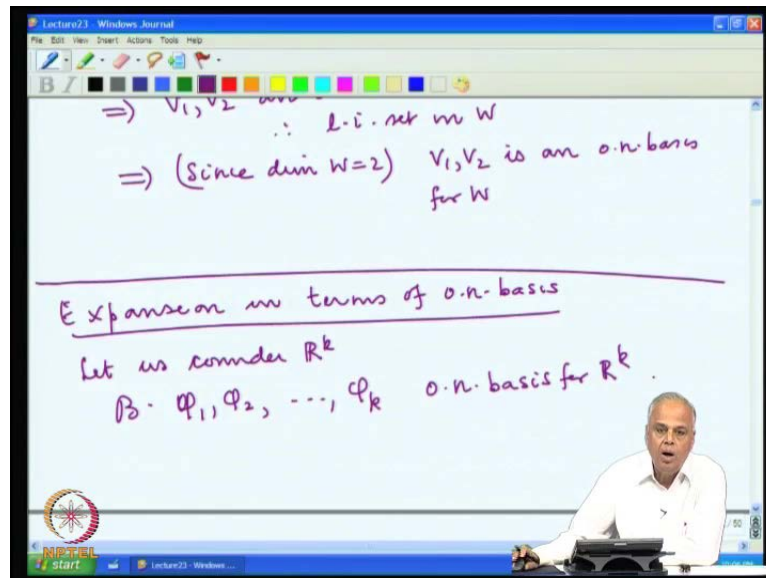 Lecture23 - Windows Journal
File Edit View Insert Actions Tools Help
B I
⇒) V₁, V₂
∴ l.i. set in W
⇒) (Since dim W=2) V₁, V₂ is an o.n. basis
for W
Expansion in terms of o.n. basis
Let us consider ℝᵏ
B. φ₁, φ₂, ..., φₖ o.n. basis for ℝᵏ.
/ 50
NPTEL
start Lecture23 - Windows ...